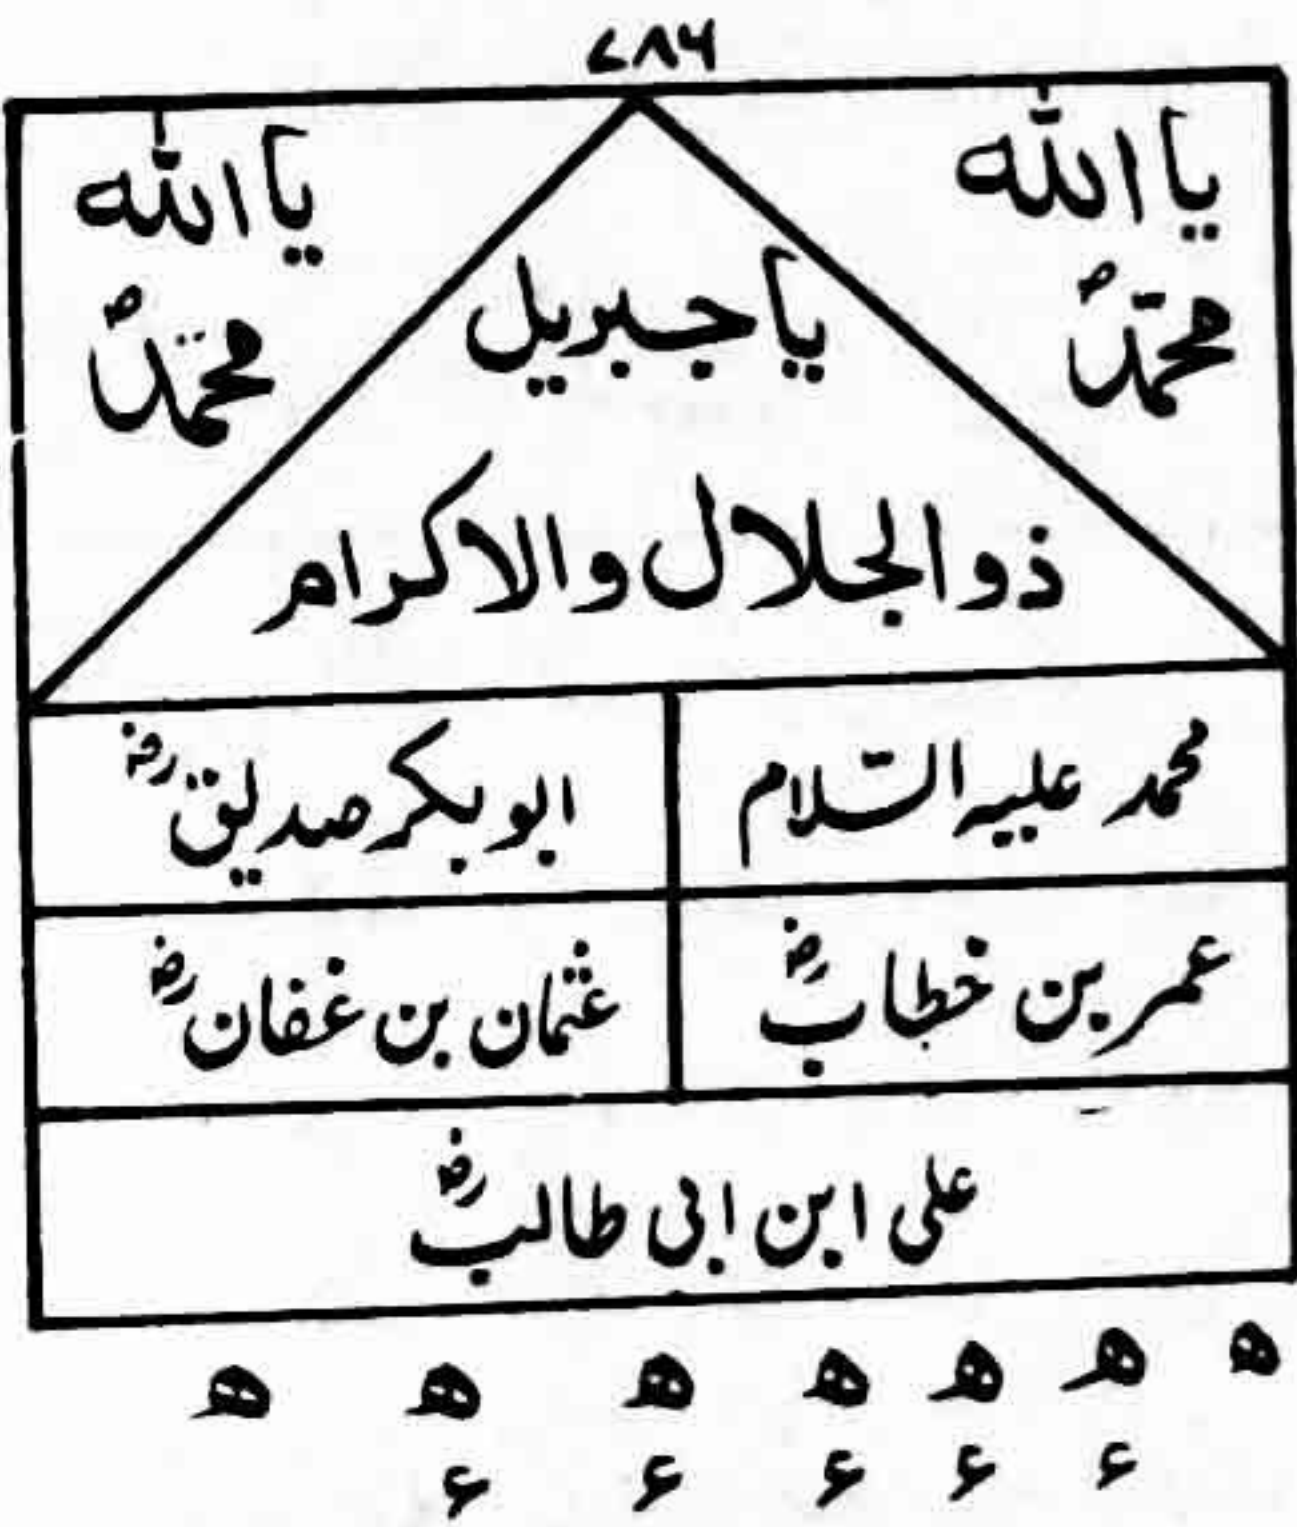 ۷۸۶
یا الله یا الله
محمّدؐ محمدؐ
یا جبریل
ذوالجلال والاکرام
محمد علیہ السّلام ابوبکر صدیقؓ
عمر بن خطابؓ عثمان بن غفانؓ
علی ابن ابی طالبؓ
ھ ھ ھ ھ ھ ھ ھ
ء ء ء ء ء